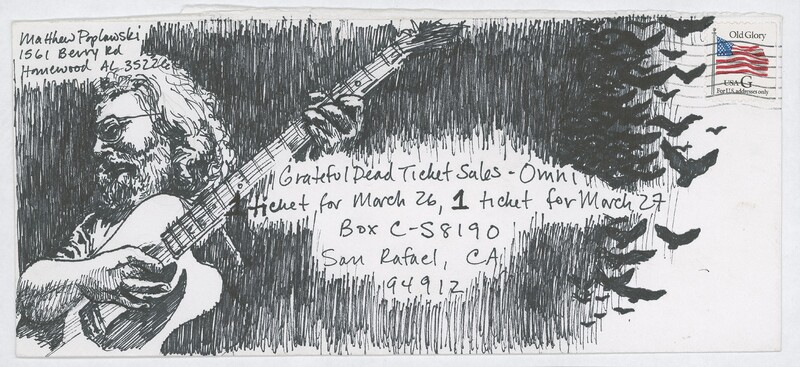 Matthew Poplawski
1561 Berry Rd
Homewood AL 35226
Old Glory
USA G
For U.S. addresses only
Grateful Dead Ticket Sales - Omni
1 ticket for March 26, 1 ticket for March 27
Box C-S8190
San Rafael, CA
94912